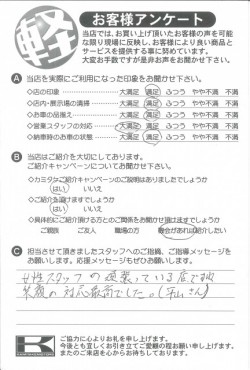 軽
お客様アンケート
当店では、お買い上げ頂いたお客様の声を可能
な限り現場に反映し、お客様により良い商品と
サービスを提供する事に努めています。
大変お手数ですが是非お声をお聞かせ下さい。
A 当店を実際にご利用になった印象をお聞かせ下さい。
◇店の印象 大満足 満足 ふつう やや不満 不満
◇店内・展示場の清掃 大満足 満足 ふつう やや不満 不満
◇お車の品揃え 大満足 満足 ふつう やや不満 不満
◇営業スタッフの対応 大満足 満足 ふつう やや不満 不満
◇納車時のお車の状態 大満足 満足 ふつう やや不満 不満
B 当店はご紹介を大切にしております。
ご紹介キャンペーンについてお聞かせ下さい。
◇カミタケご紹介キャンペーンのご説明はありましたでしょうか
はい いいえ
◇ご紹介を頂けますでしょうか
はい いいえ
◇具体的にご紹介頂ける方とのご関係をお聞かせ頂けますでしょうか
ご親民 ご友人 職場の方 機会があれば紹介したい
C 担当させて頂きましたスタッフへのご指摘、ご指導メッセージを
お願いします。応援メッセージもぜひお願いします。
女性スタッフの頑張っている店ですね
笑顔の対応最高でした。(平山さん)
K
ご協力に心よりお礼を申し上げます。
今後とも宜しくお引き立てご愛顧の程お願い申し上げます。
またのご来店を心からお待ちしております。